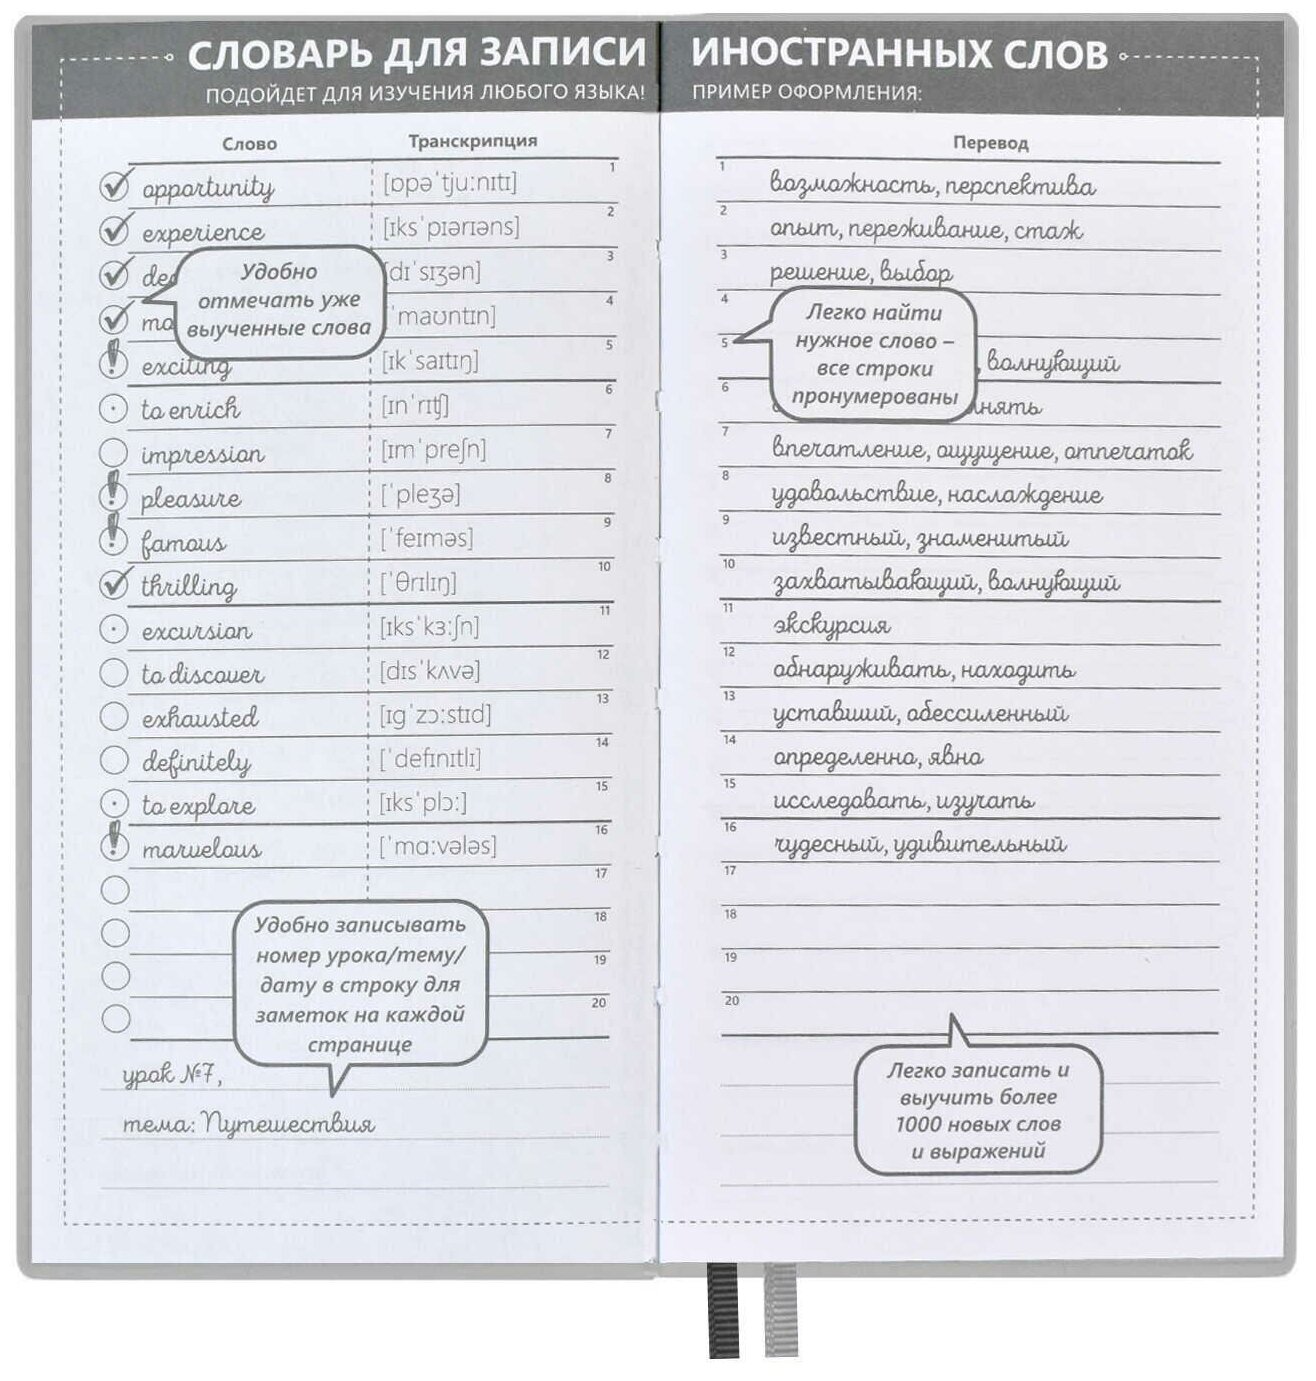 СЛОВАРЬ ДЛЯ ЗАПИСИ ИНОСТРАННЫХ СЛОВ
ПОДОЙДЕТ ДЛЯ ИЗУЧЕНИЯ ЛЮБОГО ЯЗЫКА! ПРИМЕР ОФОРМЛЕНИЯ:
Слово Транскрипция
1
opportunity [ɒpəˈtjuːnɪtɪ]
2
experience [ɪksˈpɪərɪəns]
3
[dɪˈsɪʒən]
4
[ˈmaʊntɪn]
Удобно
отмечать уже
выученные слова
5
exciting [ɪkˈsaɪtɪŋ]
6
to enrich [ɪnˈrɪʧ]
7
impression [ɪmˈpreʃn]
8
pleasure [ˈpleʒə]
9
famous [ˈfeɪməs]
10
thrilling [ˈθrɪlɪŋ]
11
excursion [ɪksˈkɜːʃn]
12
to discover [dɪsˈkʌvə]
13
exhausted [ɪgˈzɔːstɪd]
14
definitely [ˈdefɪnɪtlɪ]
15
to explore [ɪksˈplɔː]
16
marvelous [ˈmɑːvələs]
17
18
19
20
Удобно записывать
номер урока/тему/
дату в строку для
заметок на каждой
странице
урок №7,
тема: Путешествия
Перевод
1
возможность, перспектива
2
опыт, переживание, стаж
3
решение, выбор
4
5
волнующий
Легко найти
нужное слово –
все строки
пронумерованы
6
7
впечатление, ощущение, отпечаток
8
удовольствие, наслаждение
9
известный, знаменитый
10
захватывающий, волнующий
11
экскурсия
12
обнаруживать, находить
13
уставший, обессиленный
14
определенно, явно
15
исследовать, изучать
16
чудесный, удивительный
17
18
19
20
Легко записать и
выучить более
1000 новых слов
и выражений